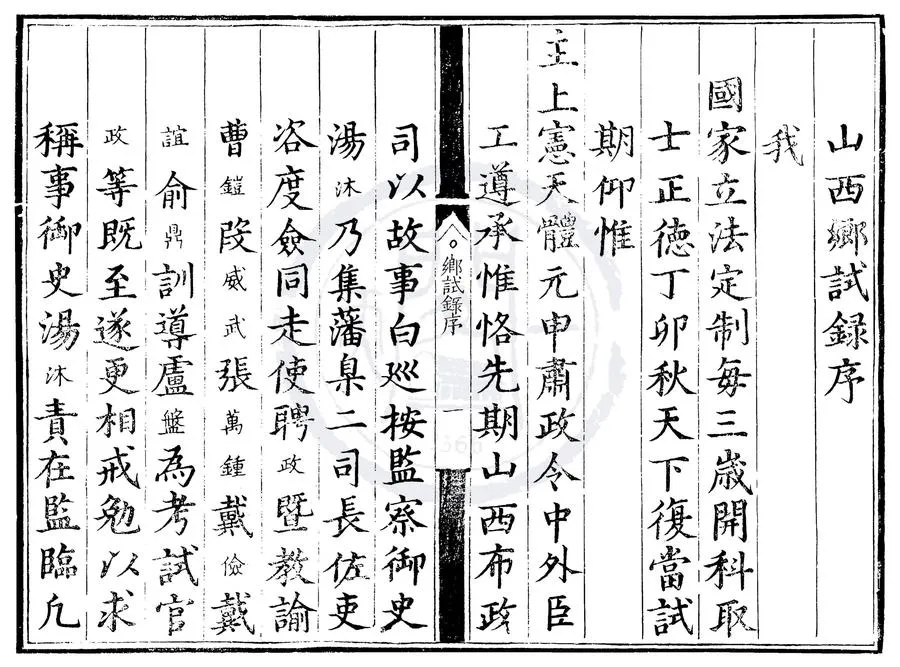 山西鄉試録序
我
國家立法定制每三歲開科取
士正德丁卯秋天下復當試
期仰惟
主上憲天體元申肅政令中外臣
工遵承惟恪先期山西布政
鄉試録序
一
司以故事白巡按監察御史
湯沐乃集藩臬二司長佐吏
咨度僉同走使聘政暨教諭
曹鎧段威武張萬鍾戴儉戴
誼俞鼎訓導盧盤為考試官
政等既至遂更相戒勉以求
稱事御史湯沐責在監臨凢